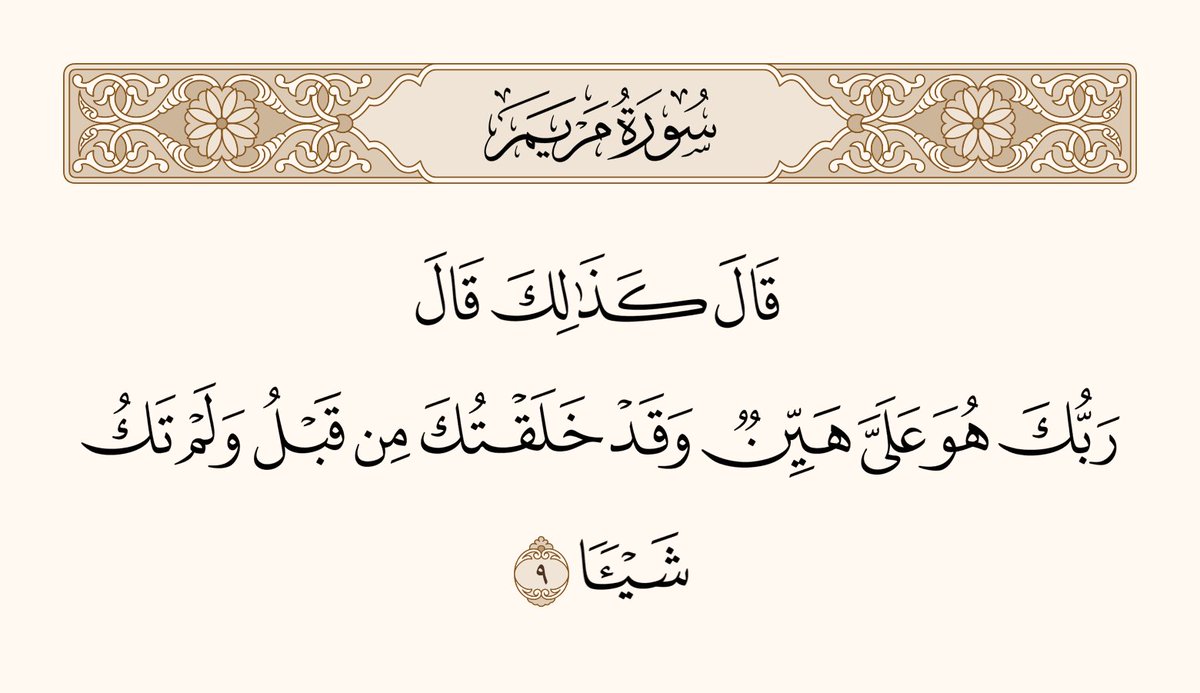 سُورَةُ مَرْيَمَ
قَالَ كَذَٰلِكَ قَالَ
رَبُّكَ هُوَ عَلَىَّ هَيِّنٌ وَقَدْ خَلَقْتُكَ مِن قَبْلُ وَلَمْ تَكُ
شَيْـًٔا ٩